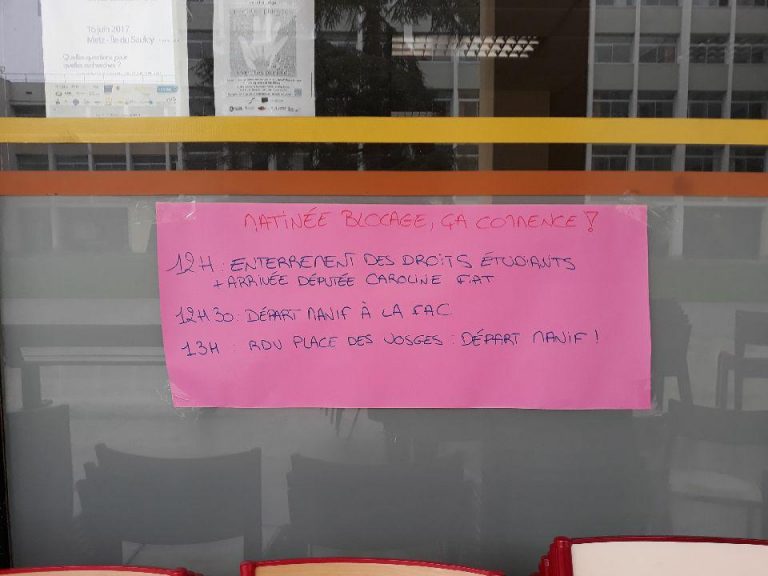 16 juin 2017
Metz - Île du Saulcy
Quelles questions pour
quelles recherches ?
MATINÉE BLOCAGE, ÇA COMMENCE !
12H : ENTERREMENT DES DROITS ÉTUDIANTS
+ ARRIVÉE DÉPUTÉE CAROLINE FIAT
12H30 : DÉPART MANIF À LA FAC
13H : RDV PLACE DES VOSGES : DÉPART MANIF !